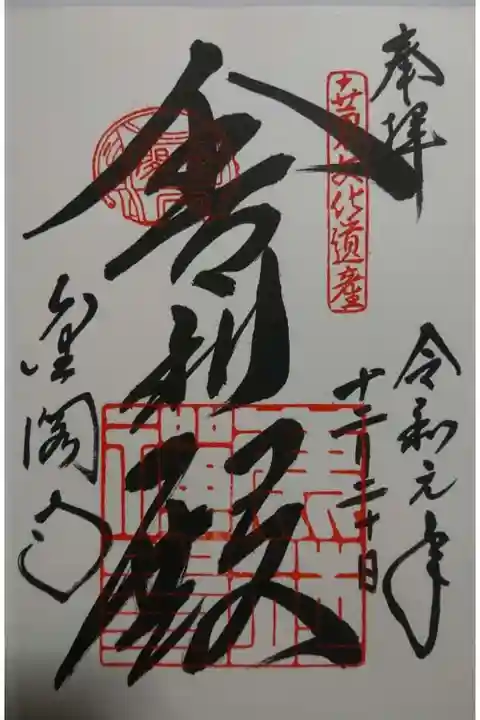 奉拝
令和元年
世界文化遺産
十二月二十日
舎利殿
金閣寺